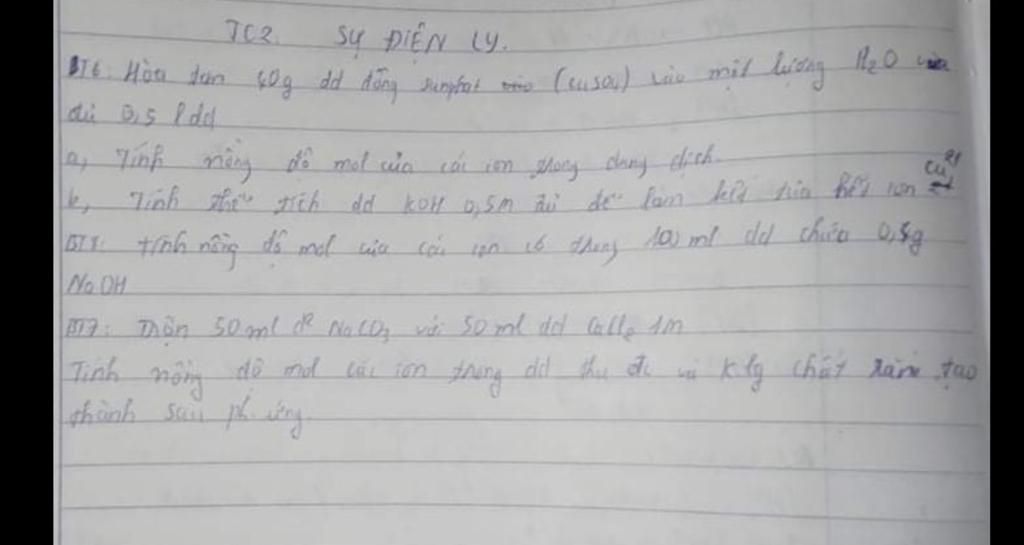 TC2. SỰ ĐIỆN LY.
BT6: Hòa tan 40g dd đồng sunphat (CuSO4) vào một lượng H2O vừa
đủ 0,5 l dd
a, Tính nồng độ mol của các ion trong dung dịch.
b, Tính thể tích dd KOH 0,5M đủ để làm kết tủa hết ion Cu2+
tính nồng độ mol của các ion có trong 100 ml dd chứa 0,5g
NaOH
BT7: Trộn 50ml dd NaCO3 với 50 ml dd CaCl2 1M
Tính nồng độ mol các ion trong dd thu đc và klg chất rắn tạo
thành sau ph ứng.